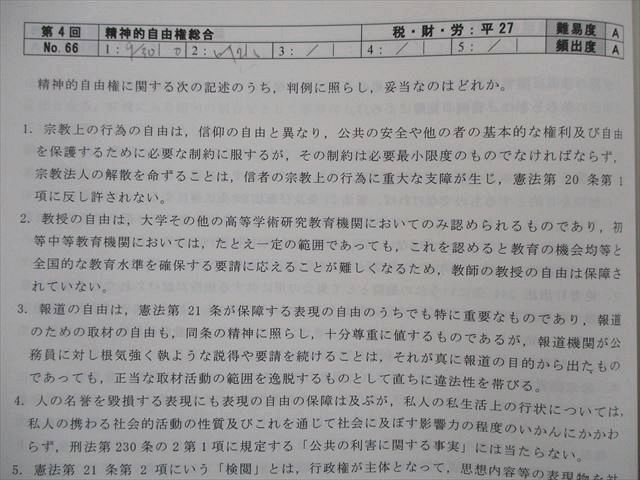 第4回 精神的自由権総合 税・財・労：平27 難易度 A
No.66 1：9/30 2： 3： / 4： / 5： / 頻出度 A
精神的自由権に関する次の記述のうち，判例に照らし，妥当なのはどれか。
1．宗教上の行為の自由は，信仰の自由と異なり，公共の安全や他の者の基本的な権利及び自由
を保護するために必要な制約に服するが，その制約は必要最小限度のものでなければならず，
宗教法人の解散を命ずることは，信者の宗教上の行為に重大な支障が生じ，憲法第20条第1
項に反し許されない。
2．教授の自由は，大学その他の高等学術研究教育機関においてのみ認められるものであり，初
等中等教育機関においては，たとえ一定の範囲であっても，これを認めると教育の機会均等と
全国的な教育水準を確保する要請に応えることが難しくなるため，教師の教授の自由は保障さ
れていない。
3．報道の自由は，憲法第21条が保障する表現の自由のうちでも特に重要なものであり，報道
のための取材の自由も，同条の精神に照らし，十分尊重に値するものであるが，報道機関が公
務員に対し根気強く執ような説得や要請を続けることは，それが真に報道の目的から出たもの
であっても，正当な取材活動の範囲を逸脱するものとして直ちに違法性を帯びる。
4．人の名誉を毀損する表現にも表現の自由の保障は及ぶが，私人の私生活上の行状については，
私人の携わる社会的活動の性質及びこれを通じて社会に及ぼす影響力の程度のいかんにかかわ
らず，刑法第230条の2第1項に規定する「公共の利害に関する事実」には当たらない。
5．憲法第21条第2項にいう「検閲」とは，行政権が主体となって，思想内容等の表現物を対